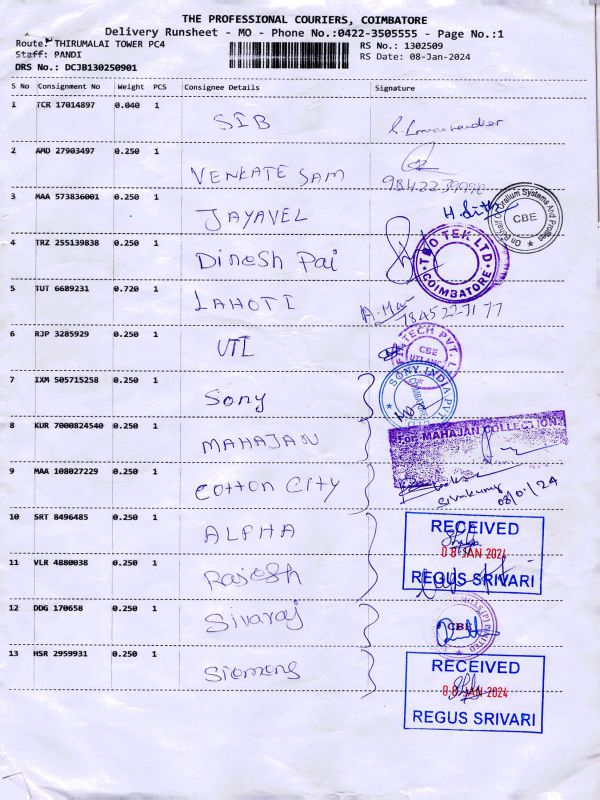 THE PROFESSIONAL COURIERS, COIMBATORE
Delivery Runsheet - MO - Phone No.:0422-3505555 - Page No.:1
Route: THIRUMALAI TOWER PC4 RS No.: 1302509
Staff: PANDI RS Date: 08-Jan-2024
DRS No.: DCJB130250901
S No Consignment No Weight PCS Consignee Details Signature
1 TCR 17014897 0.040 1 SIB
2 AMD 27903497 0.250 1 VENKATE SAM
3 MAA 573836001 0.250 1 JAYAVEL
CBE
4 TRZ 255139838 0.250 1 Dinesh Pai
TEO TEK LTD
COIMBATORE
5 TUT 6689231 0.720 1 LAHOTI
7845227177
6 RJP 3285929 0.250 1 UTI
CBE
7 IXM 505715258 0.250 1 Sony
SONY INDIA PVT.
8 KUR 7000824540 0.250 1 MAHAJAN
For MAHAJAN COLLECTION
9 MAA 108027229 0.250 1 COTTON CITY
Sivakumar
08/01/24
10 SRT 8496485 0.250 1 ALPHA
RECEIVED
08 JAN 2024
REGUS SRIVARI
11 VLR 4880038 0.250 1 Rajesh
12 DDG 170658 0.250 1 Sivaraj
CBE
13 HSR 2959931 0.250 1 Siemens
RECEIVED
08 JAN 2024
REGUS SRIVARI